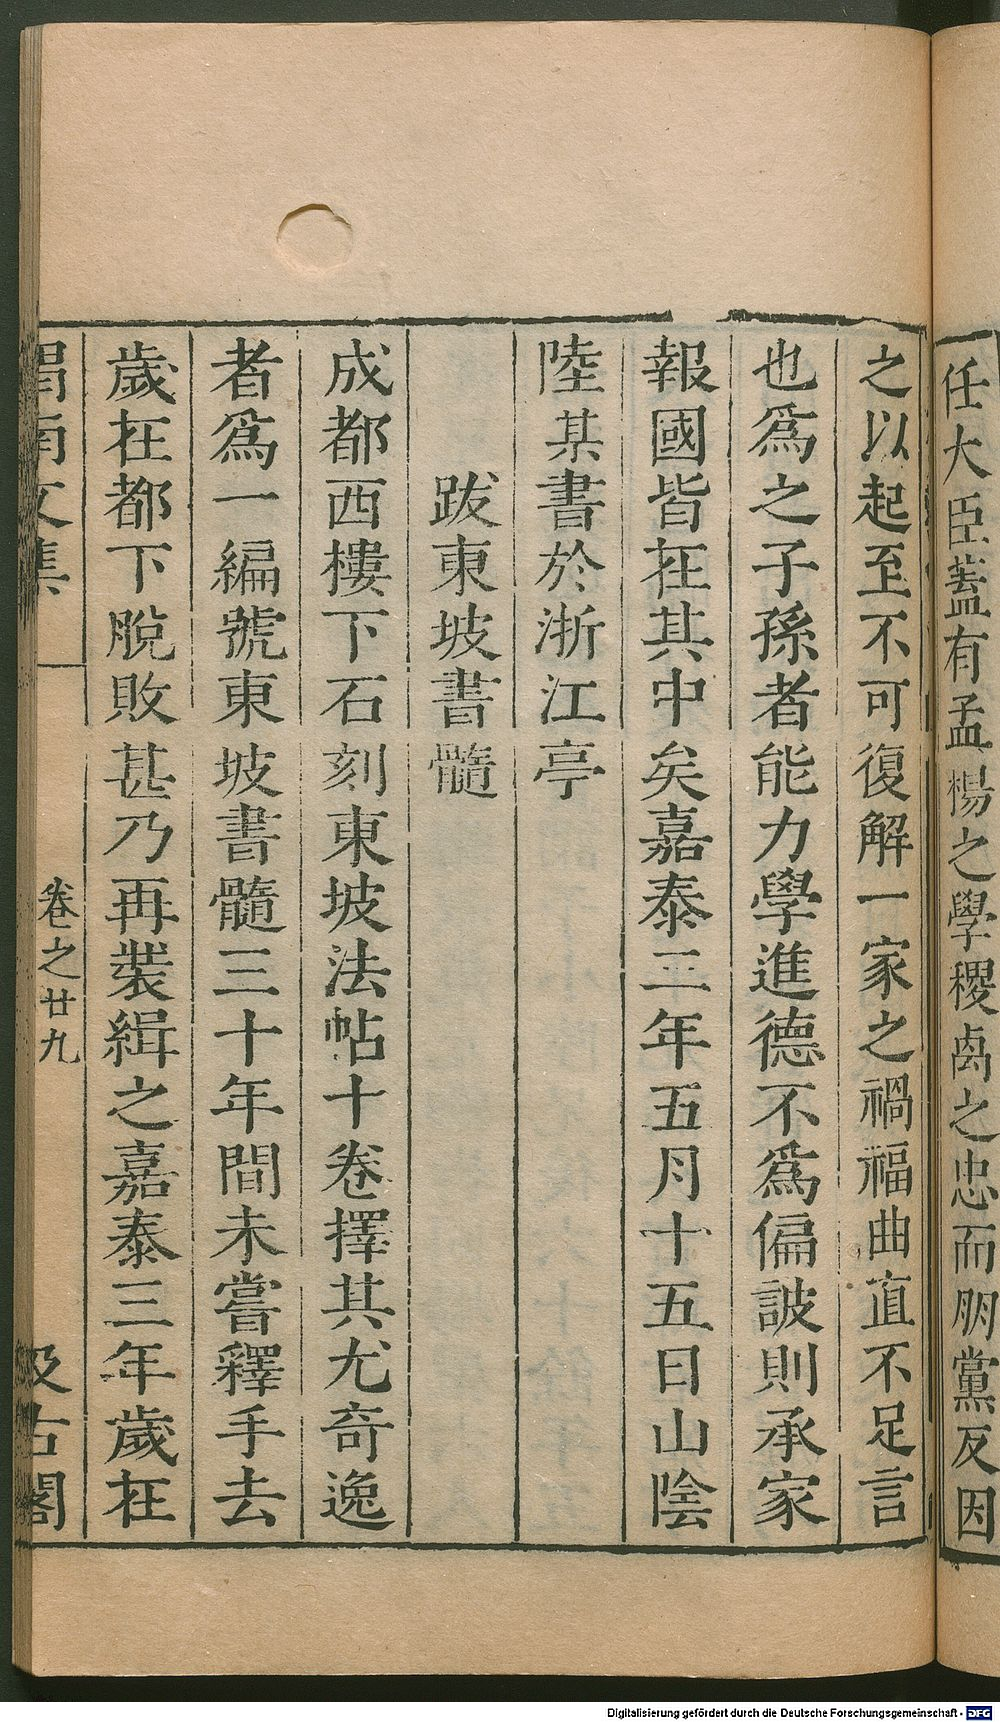 任大臣蓋有孟楊之學稷卨之忠而朋黨反因
之以起至不可復解一家之禍福曲直不足言
也爲之子孫者能力學進德不爲偏詖則承家
報國皆在其中矣嘉泰二年五月十五日山陰
陸某書於浙江亭
跋東坡書髓
成都西樓下石刻東坡法帖十卷擇其尤奇逸
者爲一編號東坡書髓三十年間未嘗釋手去
歲在都下脫敗甚乃再裝緝之嘉泰三年歲在
渭南文集 卷之廿九 汲古閣
Digitalisierung gefördert durch die Deutsche Forschungsgemeinschaft - DFG